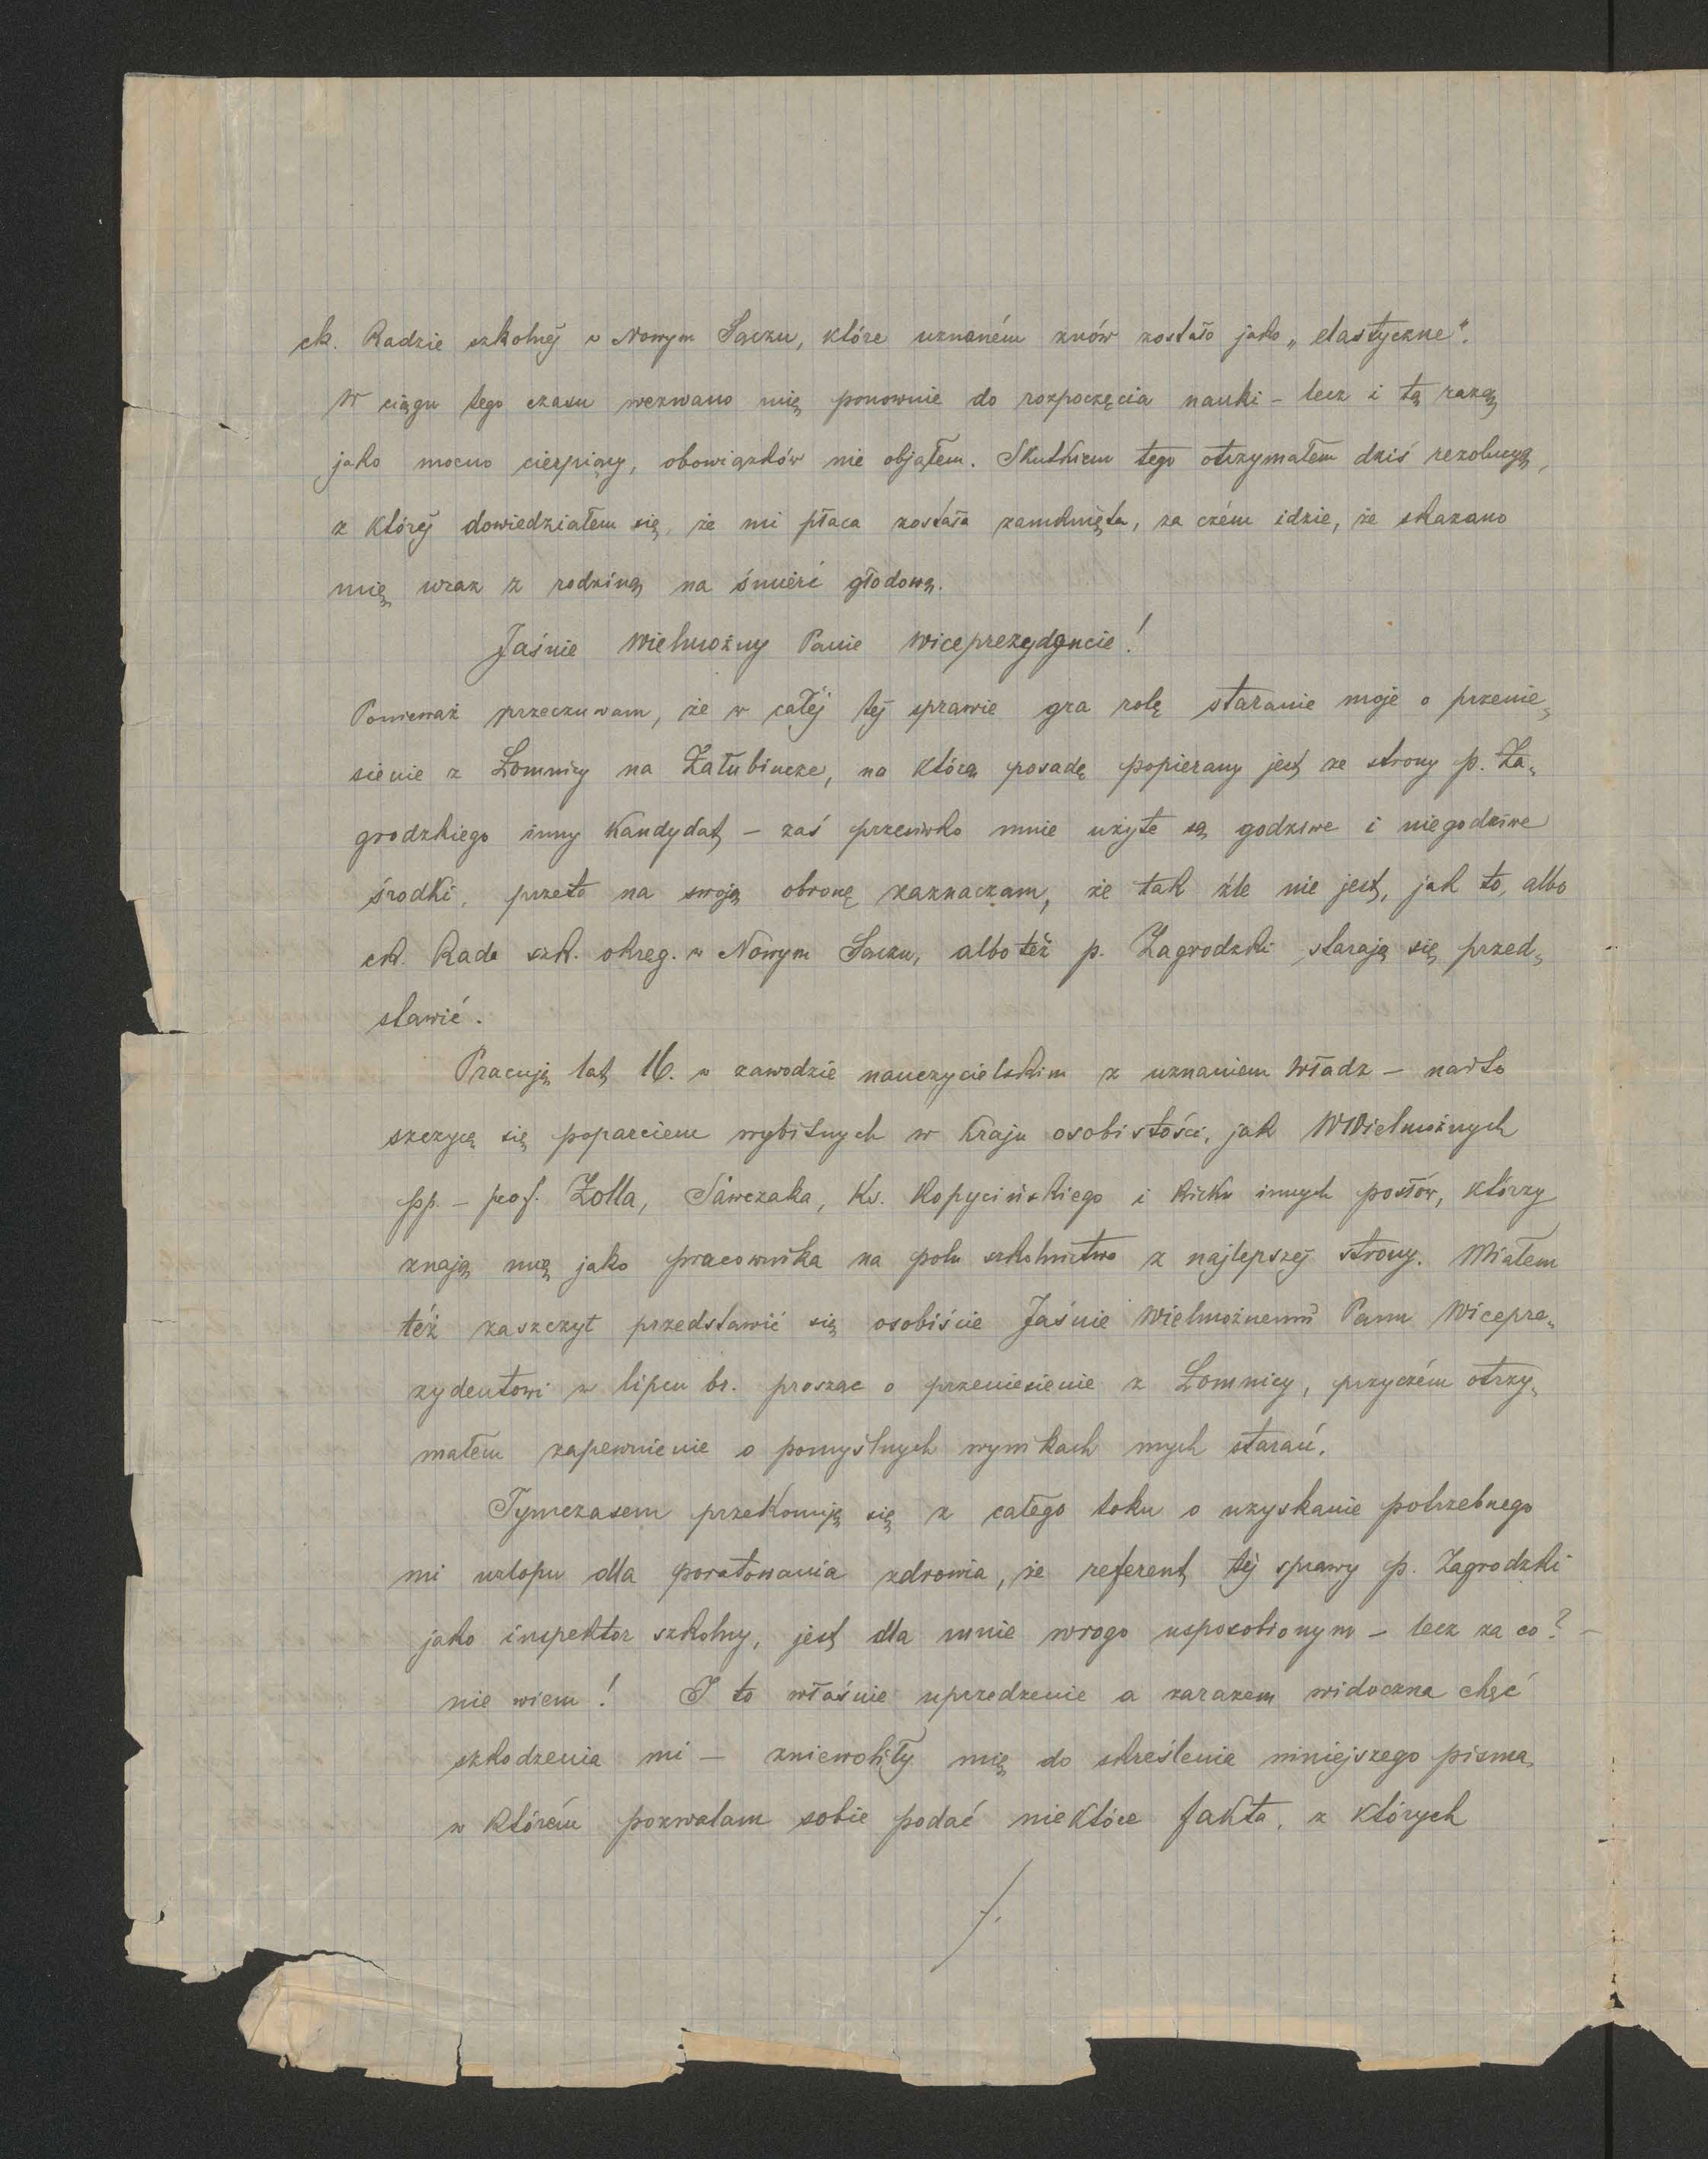 ck. Radzie szkolnéj w Nowym Sączu, które uznaném znów zostało jako „elastyczne".
W ciągu tego czasu wezwano mię ponownie do rozpoczęcia nauki – lecz i tą razą,
jako mocno cierpiący, obowiązków nie objąłem. Skutkiem tego otrzymałem dziś rezolucyą,
z któréj dowiedziałem się, że mi płaca została zamknięta, za czém idzie, że skazano
mię wraz z rodziną na śmierć głodową.
Jaśnie Wielmożny Panie Wiceprezydencie!
Ponieważ przeczuwam, że w całéj téj sprawie gra rolę staranie moje o przenie„
sienie z Łomnicy na Załubincze, na którą posadę popierany jest ze strony p. Za„
grodzkiego inny kandydat – zaś przeciwko mnie użyte są godziwe i niegodziwe
środki, przeto na swoją obronę zaznaczam, że tak źle nie jest, jak to, albo
ck. Rada szk. okreg. w Nowym Sączu, albo też p. Zagrodzki starają się przed„
stawić.
Pracuję lat 16. w zawodzie nauczycielskim z uznaniem Władz – nadto
szczycę się poparciem wybitnych w kraju osobistości, jak WWielmożnych
pp. – prof. Zolla, Sawczaka, Ks. Kopycińskiego i kilku innych posłów, którzy
znają mię jako pracownika na polu szkolnictwa z najlepszéj strony. Miałem
też zaszczyt przedstawić się osobiście Jaśnie Wielmożnemu Panu Wicepre„
zydentowi w lipcu br. prosząc o przeniesienie z Łomnicy, przyczém otrzy„
małem zapewnienie o pomyślnych wynikach mych starań.
Tymczasem przekonuję się z całego toku o uzyskanie potrzebnego
mi urlopu dla poratowania zdrowia, że referent téj sprawy p. Zagrodzki
jako inspektor szkolny, jest dla mnie wrogo usposobionym – lecz za co? –
nie wiem! I to właśnie uprzedzenie a zarazem widoczna chęć
szkodzenia mi – zniewoliły mię do skreślenia niniejszego pisma,
w którém pozwalam sobie podać niektóre fakta, z których
./.